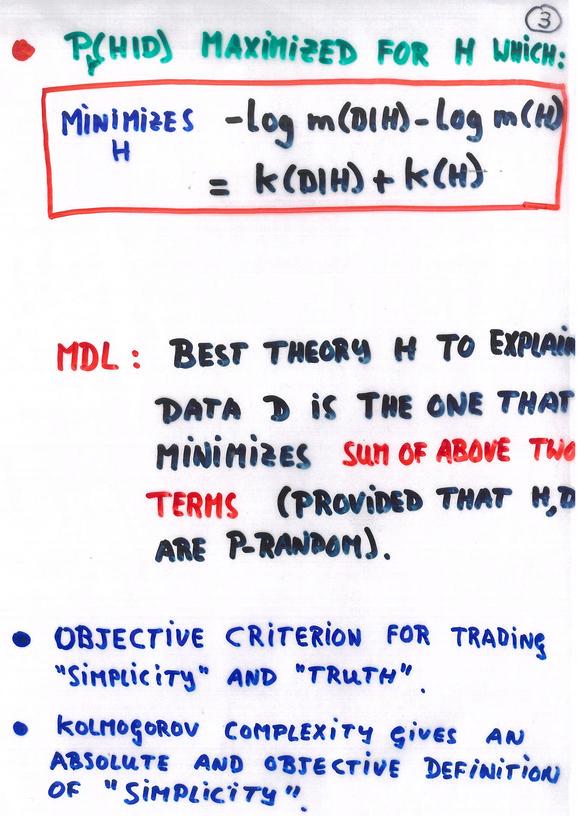 3
• P(H|D) MAXIMIZED FOR H WHICH:
MINIMIZES -log m(D|H) - log m(H)
H
= K(D|H) + K(H)
MDL: BEST THEORY H TO EXPLAIN
DATA D IS THE ONE THAT
MINIMIZES SUM OF ABOVE TWO
TERMS (PROVIDED THAT H,D
ARE P-RANDOM).
• OBJECTIVE CRITERION FOR TRADING
"SIMPLICITY" AND "TRUTH".
• KOLMOGOROV COMPLEXITY GIVES AN
ABSOLUTE AND OBJECTIVE DEFINITION
OF "SIMPLICITY".